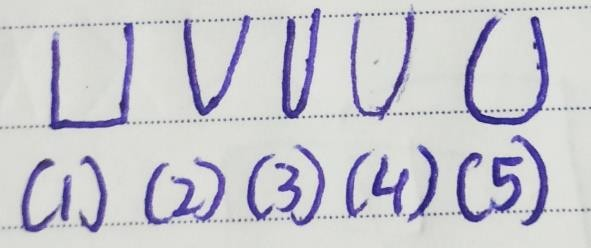 (1) (2) (3) (4) (5)